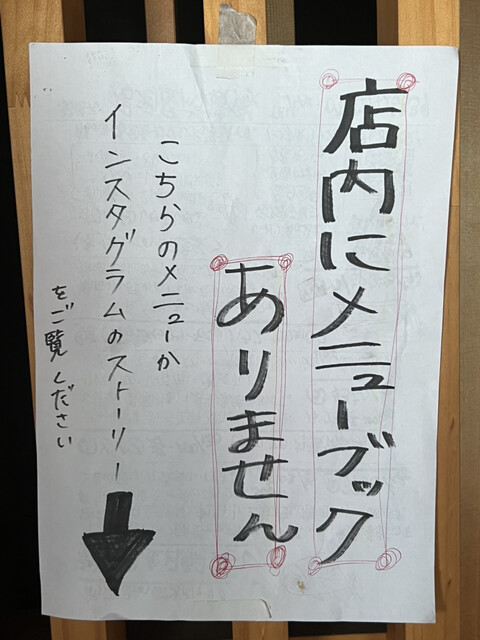 店内にメニューブック
ありません
こちらのメニューか
インスタグラムのストーリー
をご覧ください